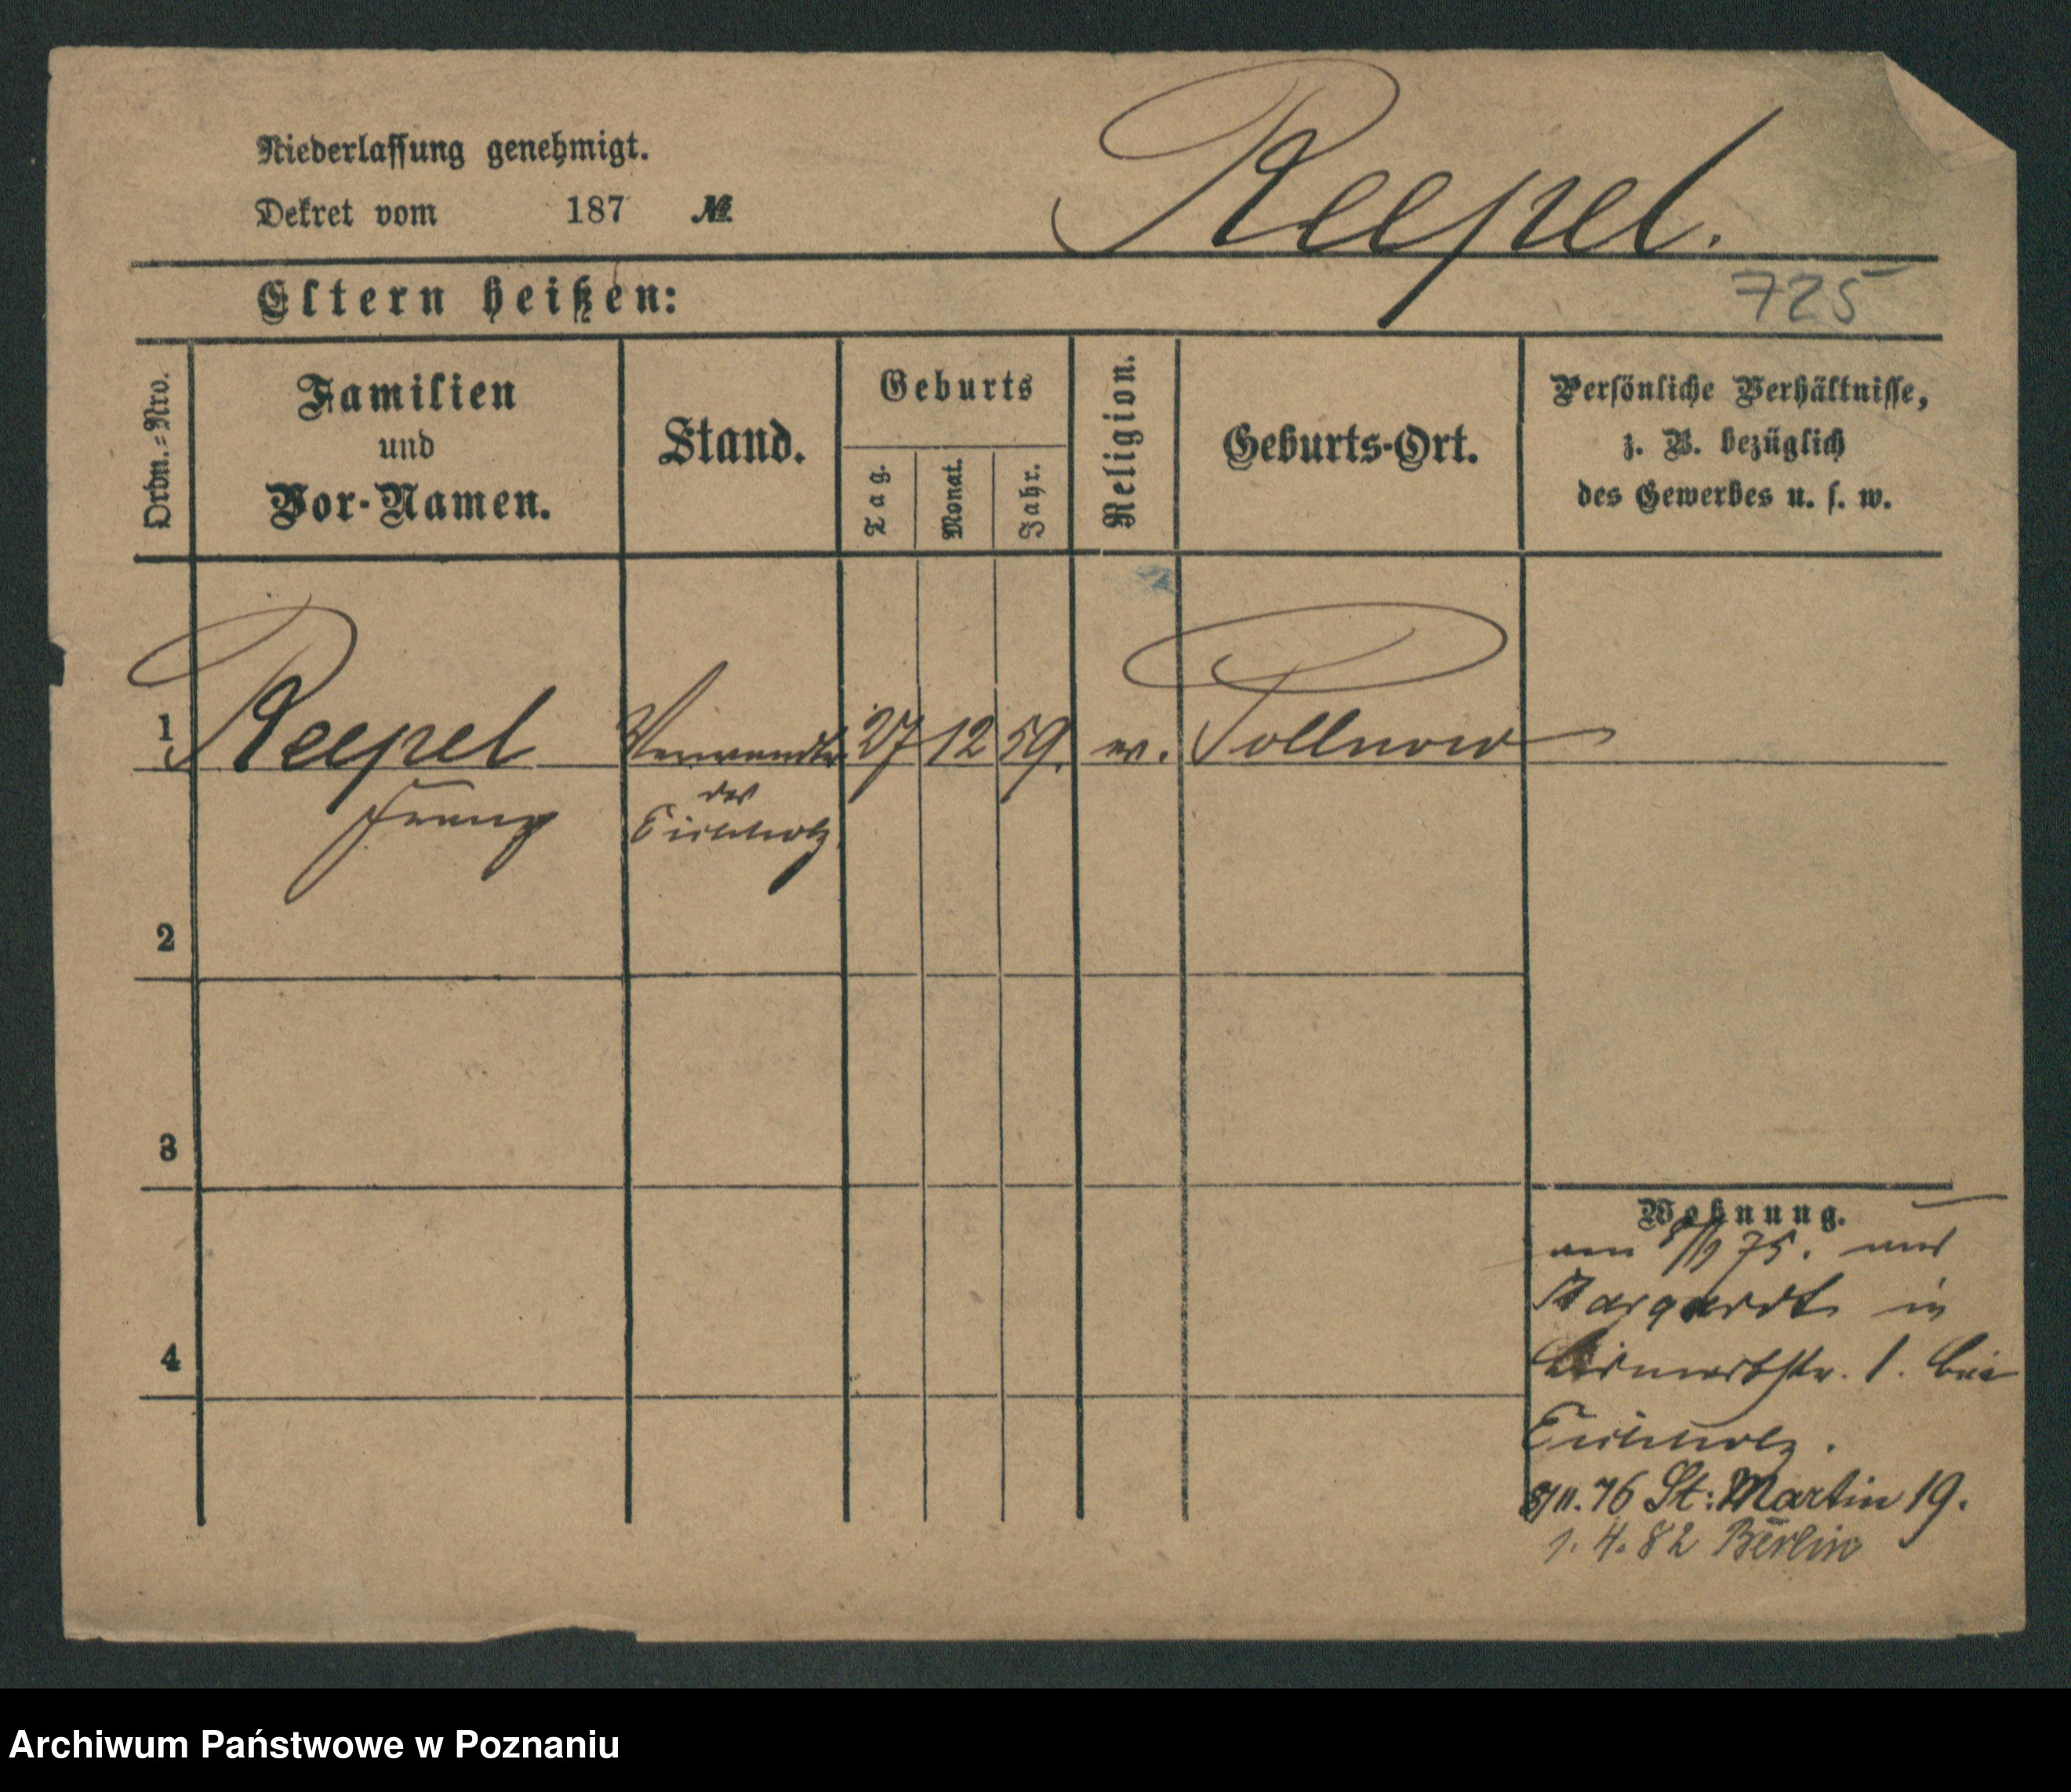 Niederlassung genehmigt.
Dekret vom 187 №
Reepel.
Eltern heißen:
725
Ordn.=Nro.
Familien
und
Vor-Namen.
Stand.
Geburts
Tag.
Monat.
Jahr.
Religion.
Geburts-Ort.
Persönliche Verhältnisse,
z. B. bezüglich
des Gewerbes u. s. w.
1 Reepel Verwandter 27 12 59. ev. Pollnow
Franz des
Eichholz
2
3
4
Wohnung.
75. aus
in
Bismarkstr. 1. bei
Eichholz.
8/11. 76 St: Martin 19.
1. 4. 82 Berlin
Archiwum Państwowe w Poznaniu